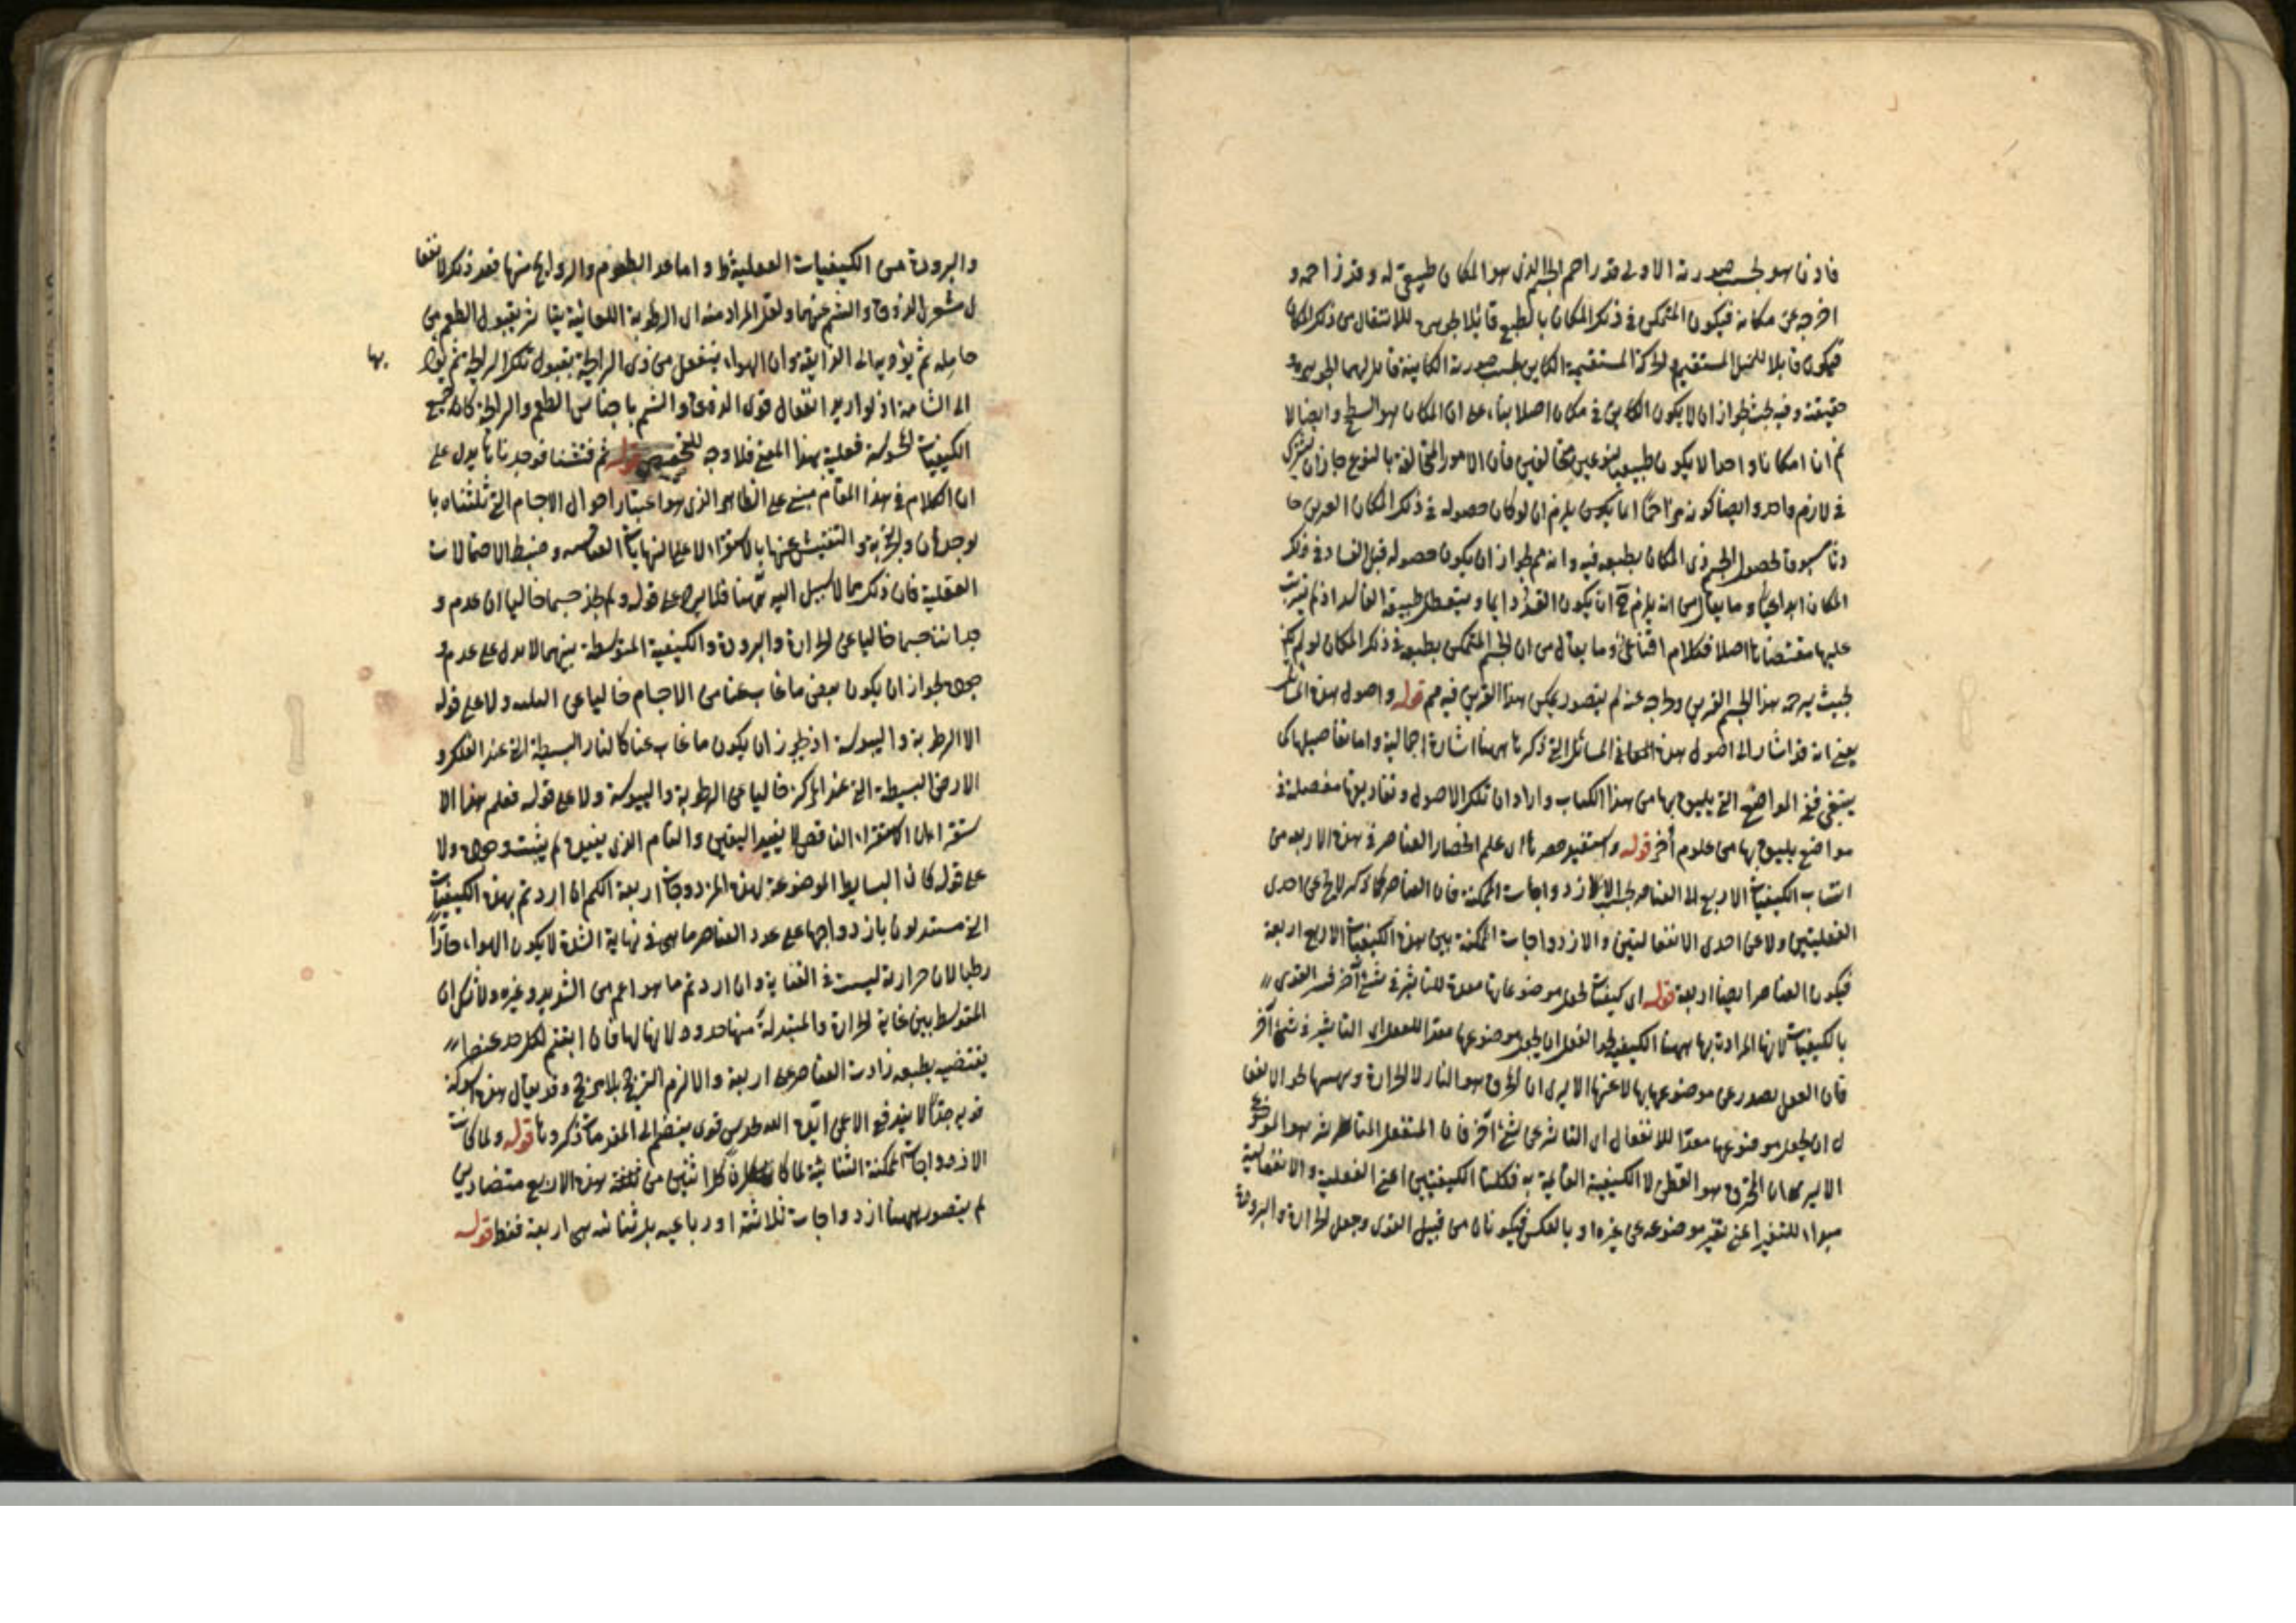 فاذن هو بحسب صورته الاولى قد زاحم الجسم الذى هو المكان طبيعى له وقد زاحمه و
اخرجه عن مكانه فيكون المتمكن فى ذلك المكان بالطبع قابلا للانتقال من ذلك المكان
فيكون قابلا للميل المستقيم والحركة المستقيمة الكاين بحسب صورته الكاينة قابل لهما
حقيقة وفيه بحث لجواز ان لا يكون الكاين فى مكان اصلا بناء على ان المكان هو السطح وايضا لا
نم ان مكانا واحدا لا يكون طبيعيا لنوعين مختالفين فان الامور المختالفة بالنوع جاز ان يشترك
فى لازم واحد وايضا كونه مزاحما انما يلزم ان لو كان حصوله فى ذلك المكان الغريب حا
دثا مسبوقا لحصول الجسم ذى المكان بطبعه فيه وانه مم لجواز ان يكون حصوله قبل الفساد فى ذلك
المكان ابداعيا وما يقال من انه يلزم ح ان يكون القسر دايما ويتعطل طبيعة الفاسد اذ لم يترتب
عليها مقتضاها اصلا فكلام اقناعى وما يقال من ان الجسم المتمكن بطبعه فى ذلك المكان لو لم يكن
بحيث يزحمه هذا الجسم الغريب عنه لم يتصور تمكن هذا الغريب فيه مم قوله واصول هذه
يعنى انه قد اشار الى اصول هذه المعانى المسائل التى ذكرناها ههنا اشارة اجمالية واما تفاصيلها كما
ينبغى ففى المواضع التى يليق بها من هذا الكتاب واراد ان تلك الاصول وتفاريعها مفصلة فى
مواضع يليق بها من علوم أخر قوله واستفيد حصرها اى علم انحصار العناصر فى هذه الاربعة من
انتساب الكيفيات الاربع الى العناصر بحسب الازدواجات الممكنة فان العناصر كما ذكر لا يخ عن احدى
الفعليتين ولا عن احدى الانفعاليتين والازدواجات الممكنة بين هذه الكيفيات الاربع اربعة
فيكون العناصر ايضا اربعة قوله اى كيفيات تجعل موضوعاتها معدة للتاثير فى شئ آخر فسر القوى
بالكيفيات لانها المرادة بها ههنا الكيفية نحو الفعل ان يجعل موضوعها معدا للفعل اى التاثير فى شئ آخر
فان الفعل يصدر عن موضوعها بها لا عنها الا يرى ان المحرق هو النار لا الحرارة وتهيئها نحو الانفعا
ل ان يجعل موضوعها معدا للانفعال اى التاثر عن شئ آخر فان المنفعل المتاثر هو الموضوع
الا يرى ان المحترق هو القطن لا الكيفية القائمة به فكلتا الكيفيتين اعنى الفعلية والانفعالية
مبداء للتغير اعنى تغير موضوعه عن غيره او بالعكس فيكونان من قبيل القوى وجعل الحرارة والبرودة
والبرودة من الكيفيات الفعلية ظ واما عد الطعوم والروايح منها فقد ذكر لانفعا
ل مشعرى الذوق والشم عنهما ولعل المراد منه ان الرطوبة اللعابية يتاثر بقبول الطعم من
حامله ثم يؤديه الى الذايقة وان الهواء ينفعل من ذى الرايحة بقبول تلك الرايحة ثم يؤد
بها
الى الشامة اذ لو اريد انفعال قوى الذوق والشم باحساس الطعم والرايحة كان جميع
الكيفيات المحسوسة فعلية بهذا المعنى فلا وجه للتخصيص قوله ثم فتشنا فوجدنا ها يدل على
ان الكلام فى هذا المقام مبنى على الظاهر الذى هو اعتبار احوال الاجسام التى ثلثناه با
لوجدان والتجربة والتفتيش عنها بالاستقراء لا على النهايات وضبط الاحتمالات
العقلية فان ذلك مما لا سبيل اليه ههنا فلا يرد على قوله ولم نجد جسما خاليا ان عدم و
جداننا جسما خاليا عن الحرارة والبرودة والكيفية المتوسطة بينهما لا يدل على عدم و
جوده لجواز ان يكون بعض ما غاب عنا من الاجسام خاليا عن الثلثه ولا على قوله
الا الرطوبة واليبوسة اذ يجوز ان يكون ما غاب عنا كالنار البسيطة التى عند الفلك و
الارض البسيطة التى عند المركز خاليا عن الرطوبة واليبوسة ولا على قوله فعلم بهذا الا
ستقراء ان الاستقراء الناقص لا يفيد اليقين والتام الذى يفيده لم يثبت وجوده ولا
على قوله كان البسايط الموضوعة لهذه المزدوجات اربعة انكم ان اردتم بهذه الكيفيات
التى تستدلون بازدواجها على عدد العناصر ما هى فى نهاية الشدة لا يكون الهواء حارا
رطبا لان حرارته ليست فى الغاية وان اردتم ما هو اعم من الشديد وغيره ولا شك ان
المتوسط بين غاية الحرارة والمبتدلة منها حدود لا نهاية لها فان اثبتم لكل حد عنصرا
يقتضيه بطبعه زادت العناصر على اربعة والا لزم الترجيح بلا مرجح وقد يقال هذه
قوية جدا لا يندفع الا عن اتيه الله بحدس قوى ينضم الى المقدمات ذكروها قوله ولما كانت
الازدواجات الممكنة الثنائية لما كان كل اثنين من ثلثة هذه الاربع متضادين
لم يتصور ههنا ازدواجات ثلاثة او رباعيه بل ثنائيه هى اربعة فقط قوله